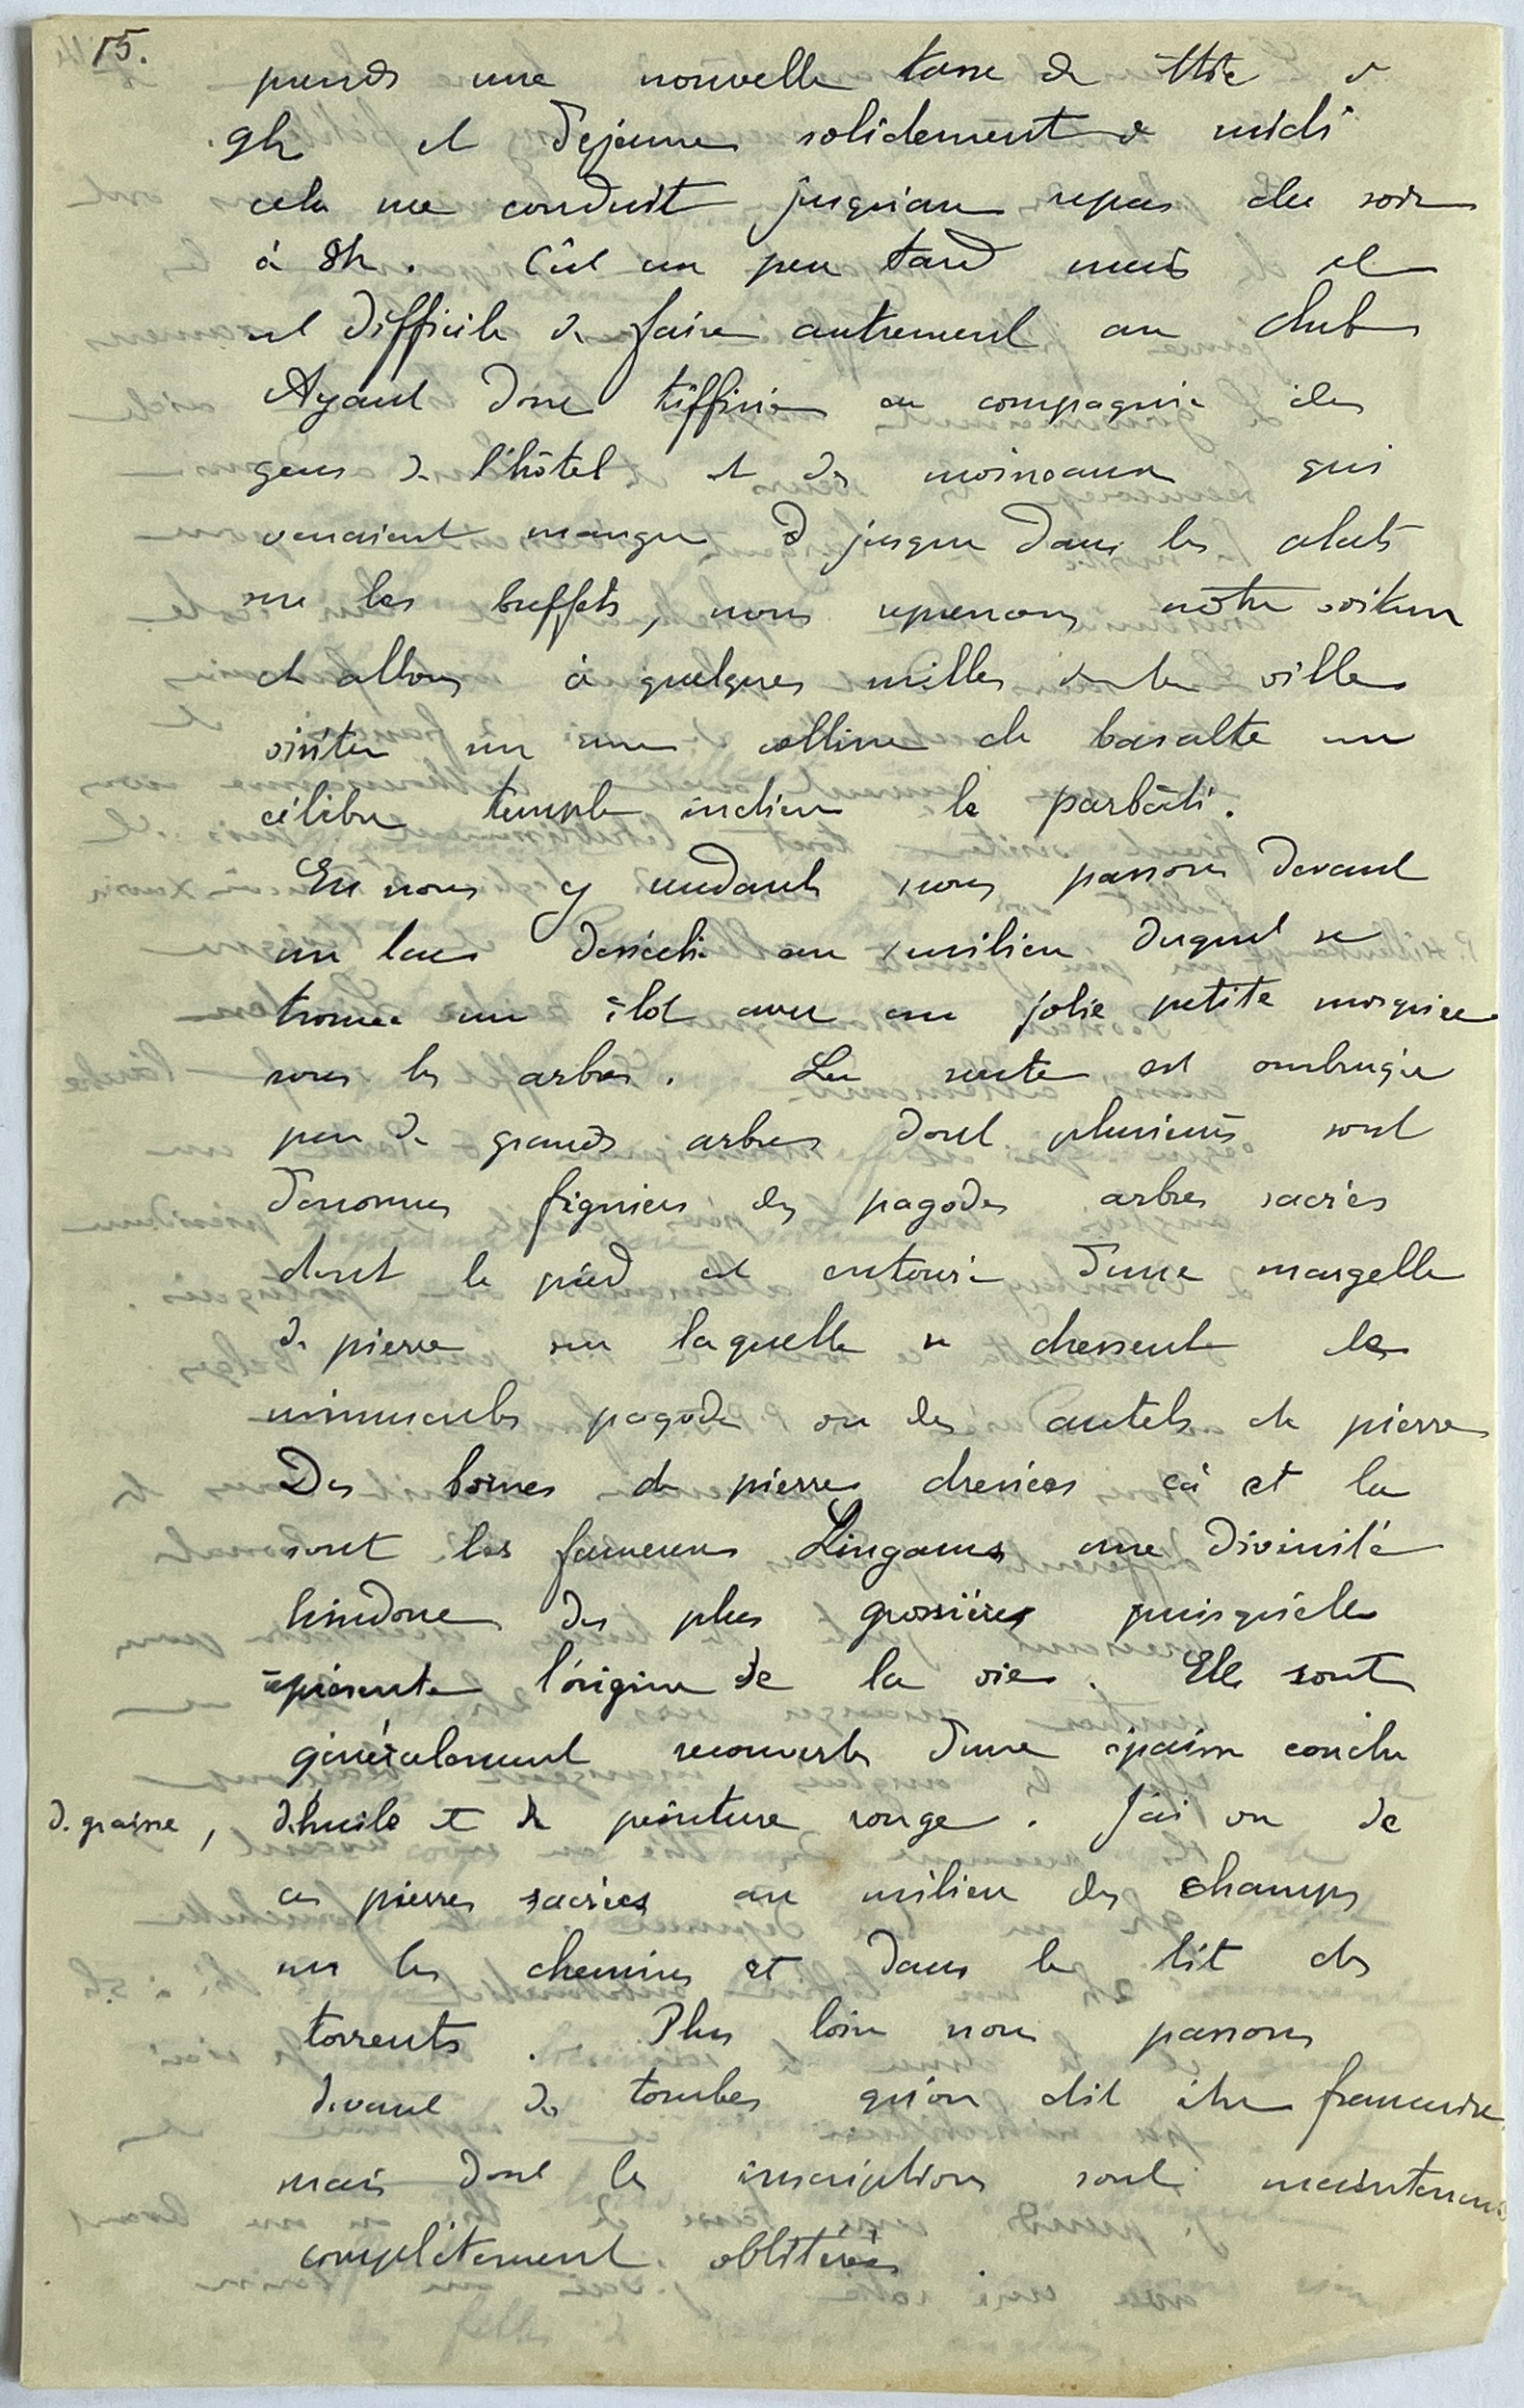 15.
prends une nouvelle tasse de thé à
9h et déjeune solidement à midi
cela me conduit jusqu'au repas du soir
à 8h. C'est un peu tard mais il
est difficile de faire autrement au club
Ayant donc tiffiné en compagnie des
gens de l'hôtel et des moineaux qui
venaient manger jusque dans les plats
sur les buffets, nous reprenons notre voiture
et allons à quelques milles de la ville
visiter sur une colline de basalte un
célèbre temple indien le parbâti.
En nous y rendant nous passons devant
un lac desséché au milieu duquel se
trouve un îlot avec une jolie petite mosquée
sous les arbres. La route est ombragée
par de grands arbres dont plusieurs sont
d'énormes figuiers des pagodes arbres sacrés
dont le pied est entouré d'une margelle
de pierre sur laquelle se dressent des
minuscules pagodes ou des autels de pierre
Des bornes de pierre dressées çà et là
sont les fameux Lingams une divinité
hindoue des plus grossières puisqu'elle
représente l'origine de la vie. Elle sont
généralement recouverts d'une épaisse couche
de graisse, d'huile et de peinture rouge. J'ai vu de
ces pierres sacrées au milieu des champs
sur les chemins et dans le lit des
torrents. Plus loin nous passons
devant des tombes qu'on dit être françaises
mais dont les inscriptions sont maintenant
complètement oblitérées.